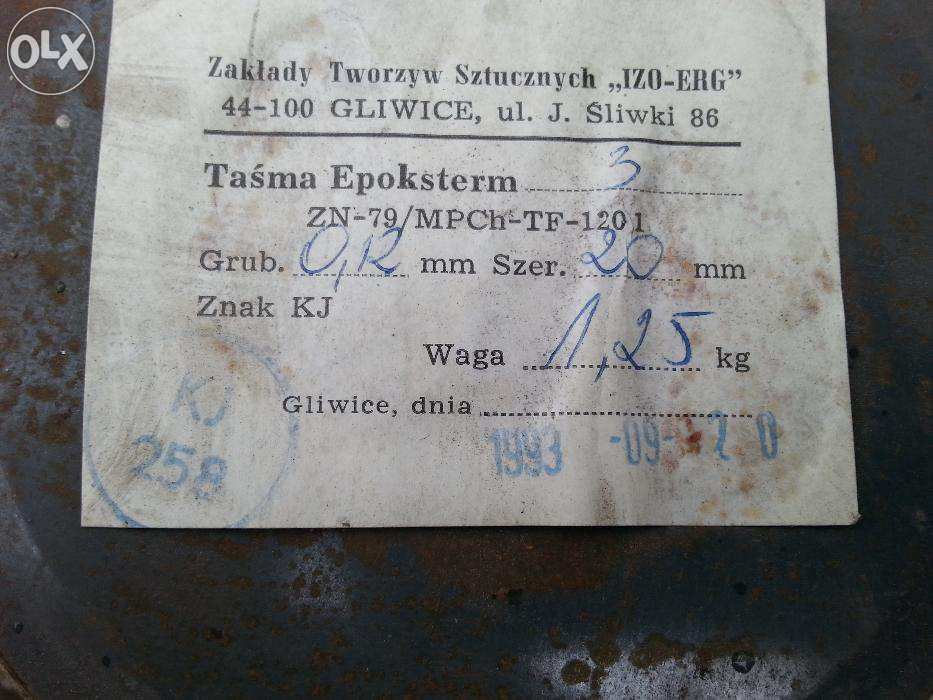 OLX
Zakłady Tworzyw Sztucznych „IZO-ERG”
44-100 GLIWICE, ul. J. Śliwki 86
Taśma Epoksterm 3
ZN-79/MPCh-TF-1201
Grub. 0,12 mm Szer. 20 mm
Znak KJ
Waga 1,25 kg
Gliwice, dnia
1993 -09- 20
KJ
258